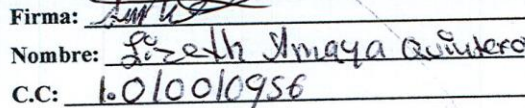 Firma:
Nombre: Lizeth Amaya Quintero
C.C: 1.010010956